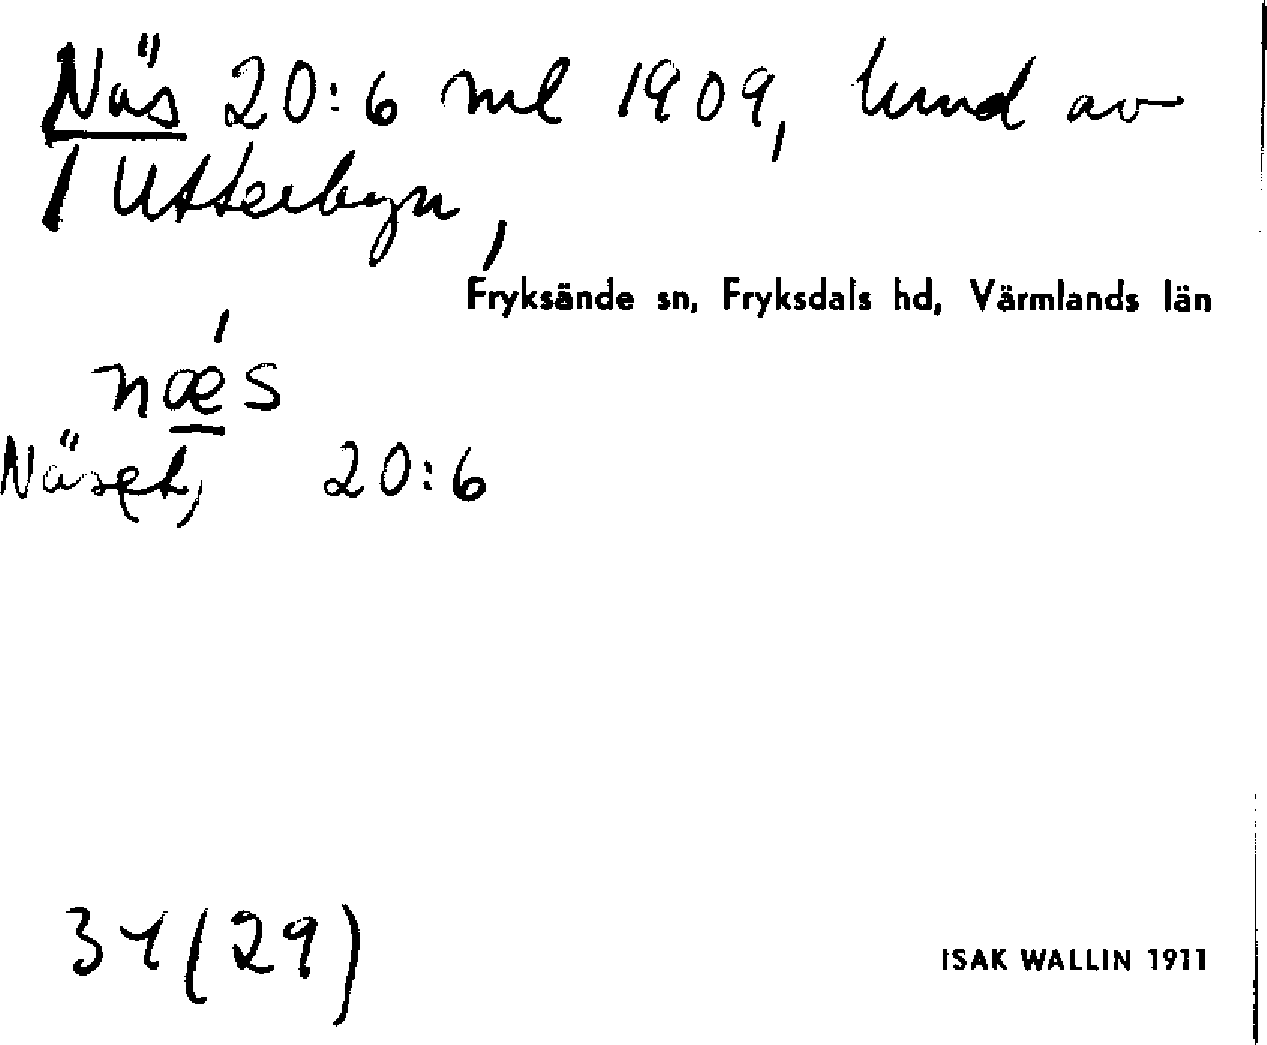 Näs 20:6 ml 1909, lund av
1 Utterbyn,
Fryksände sn, Fryksdals hd, Värmlands län
nǽ̲s
Näset, 20:6
(29)
ISAK WALLIN 1911